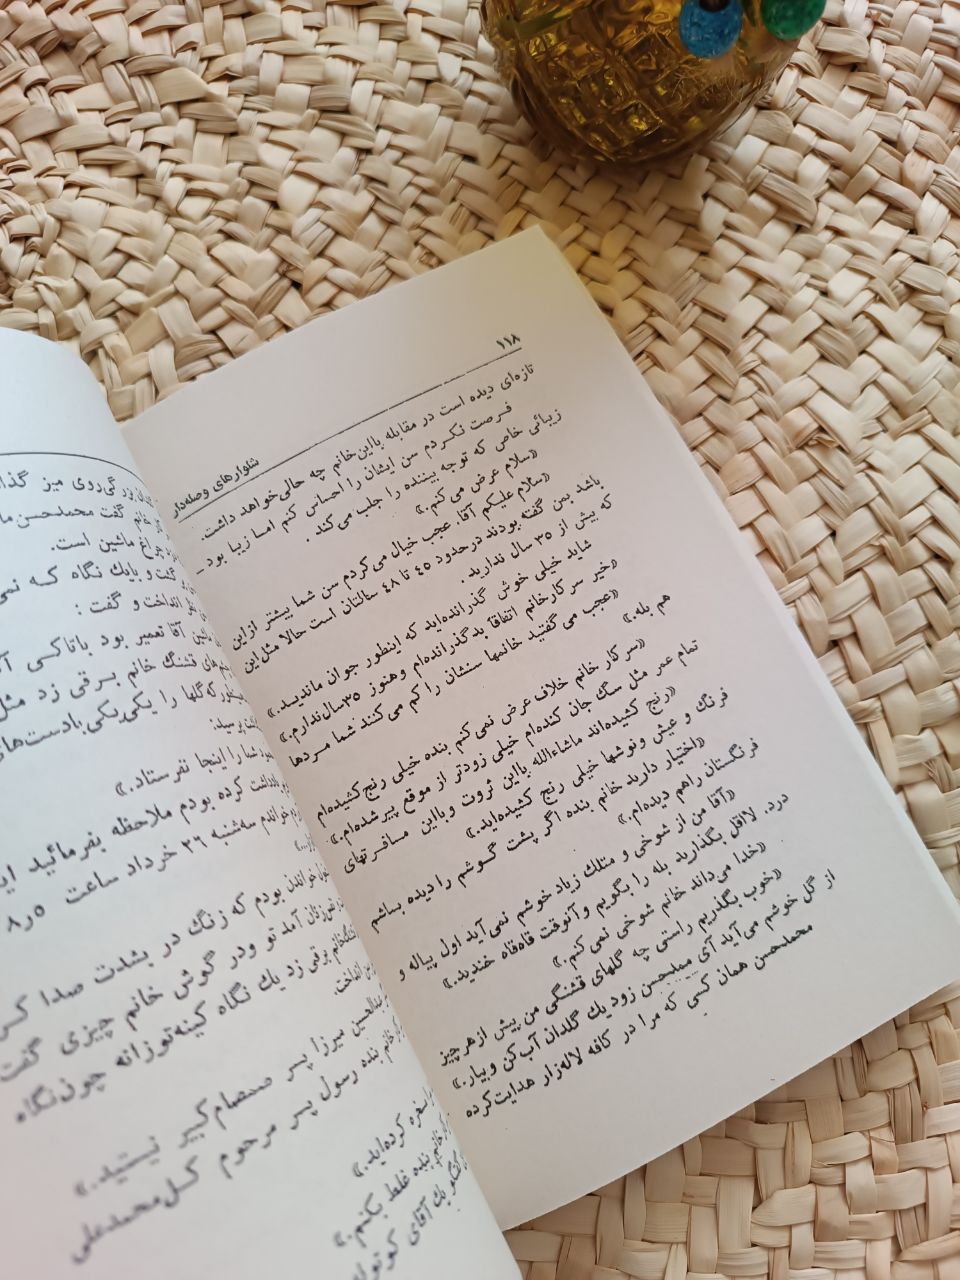 ۱۱۸
شلوارهای وصله‌دار
تازه‌ای دیده است در مقابله بااین‌خانم چه حالی‌خواهد داشت.
فرصت نکردم سن ایشان را احساس کنم اما زیبا بود ــ
زیبائی خاص که توجه بیننده را جلب می‌کند.
«سلام عرض می‌کنم.»
«سلام علیکم آقا. عجب خیال می‌کردم سن شما بیشتر ازاین
باشد بمن گفته بودند درحدود ٤٥ تا ٤٨ سالتان است حالا مثل‌این
که بیش از ۳۵ سال ندارید.
شاید خیلی خوش گذرانده‌اید که اینطور جوان ماندید.»
«خیر سرکارخانم اتفاقاً بدگذرانده‌ام وهنوز ۳۵سال‌ندارم.»
«عجب می‌گفتید خانمها سنشان را کم می‌کنند شما مردها
هم بله.»
«سرکار خانم خلاف عرض نمی‌کنم بنده خیلی رنج‌کشیده‌ام
تمام عمر مثل سگ جان کنده‌ام خیلی زودتر از موقع پیرشده‌ام.»
«رنج کشیده‌اند ماشاءالله بااین ثروت وبااین مسافرتهای
فرنگ و عیش ونوشها خیلی رنج کشیده‌اید.»
«اختیار دارید خانم بنده اگر پشت گوشم را دیده باشم
فرنگستان راهم دیده‌ام.»
«آقا من از شوخی و متلک زیاد خوشم نمی‌آید اول پیاله و
درد. لااقل بگذارید بله را بگویم وآنوقت قاه‌قاه خندید.»
«خدا می‌داند خانم شوخی نمی‌کنم.»
«خوب بگذاریم راستی چه گلهای قشنگی من پیش ازهرچیز
از گل خوشم می‌آید آی ممدحسن زود یك گلدان آب‌کن وبیار.»
محمدحسن همان کسی که مرا در کافه لاله‌زار هدایت‌کرده
گی‌روی میز
خانم گفت محمدحسن
چراغ ماشین است.
گفت و بایك نگاه که
انداخت و گفت :
ماشین آقا تعمیر بود باتاکسی
های قشنگ خانم برقی زد مثل
که گلها را یکی‌یکی‌بادست‌های
پرسید:
شما را اینجا نفرستاد.»
یادداشت کرده بودم ملاحظه بفرمائید
خواندم سه‌شنبه ۲٦ خرداد ساعت ٥ر٨
خواندن بودم که زنگ در بشدت صدا
آمدتو ودر گوش خانم چیزی گفت
برقی زد یك نگاه کینه‌توزانه چون‌نگاه
انداخت.
میرزا پسر صمصام‌کبیر نیستید.»
خانم بنده رسول پسر مرحوم کل‌محمدعلی
کرده‌اید.»
خانم‌بنده غلط بکنم.»
یك آقای